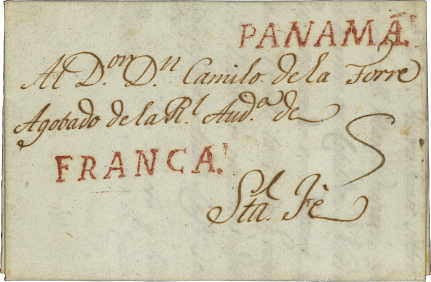 PANAMÁ.
Al D.on D.n Camilo de la Torre
Agobado de la R.l Aud.a de
FRANCA.
Sta. Fè